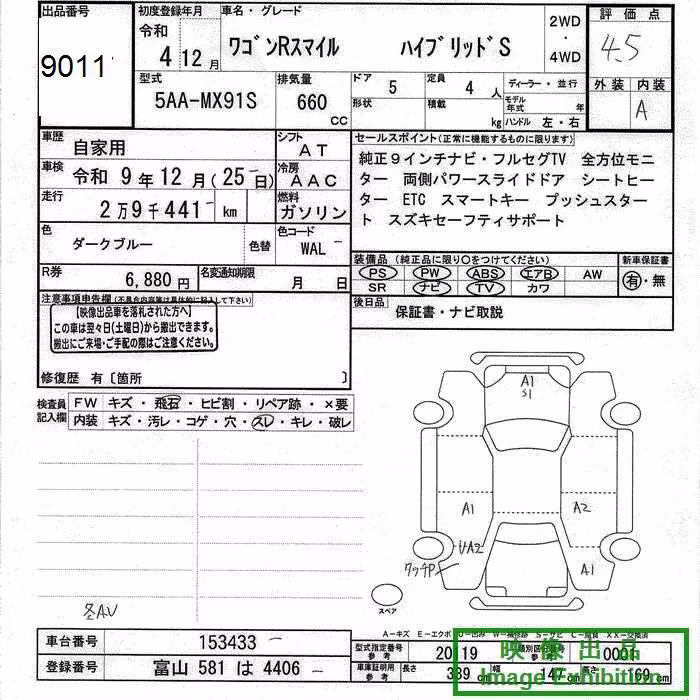 出品番号
9011
初度登録年月
令和
4 12月
車名・グレード
ワゴンRスマイル ハイブリッドS
2WD
・
4WD
評価点
4.5
外装 内装
A
型式
5AA-MX91S
排気量
660
CC
ドア
5
定員
4 人
形状
積載
kg
ディーラー・並行
モデル
年式 年
ハンドル 左・右
車歴
自家用
シフト
AT
車検
令和 9年12月(25日)
冷房
AAC
走行
2万9千441 km
燃料
ガソリン
色
ダークブルー
色替
色コード
WAL
R券
6,880円
名変通知期限
月 日
セールスポイント(正常に機能するものに限ります)
純正9インチナビ・フルセグTV 全方位モニ
ター 両側パワースライドドア シートヒー
ター ETC スマートキー プッシュスター
ト スズキセーフティサポート
装備品(純正品に限り○をつけてください)
PS PW ABS エアB AW
SR ナビ TV カワ
新車保証書
有・無
後日品
保証書・ナビ取説
注意事項申告欄(不具合内容等は具体的に記入して下さい)
【映像出品車を落札された方へ】
この車は翌々日(土曜日)から搬出できます。
搬出にご来場・ご手配の際はご注意ください。
修復歴 有〔箇所 〕
検査員
記入欄
FW キズ・飛石・ヒビ割・リペア跡・×要
内装 キズ・汚レ・コゲ・穴・スレ・キレ・破レ
A1
S1
A1
A2
UA2
タッチP
A1
スペア
A-キズ E-エクボ U-凹み W-補修跡 S-サビ C-腐食 XX-交換済
車台番号
153433
登録番号
富山 581 は 4406
型式指定番号
参考
20119
類別区分番号
参考
0001
車庫証明用
参考
長さ
339cm
幅
147cm
高さ
169cm
映像出品
Image Exhibition